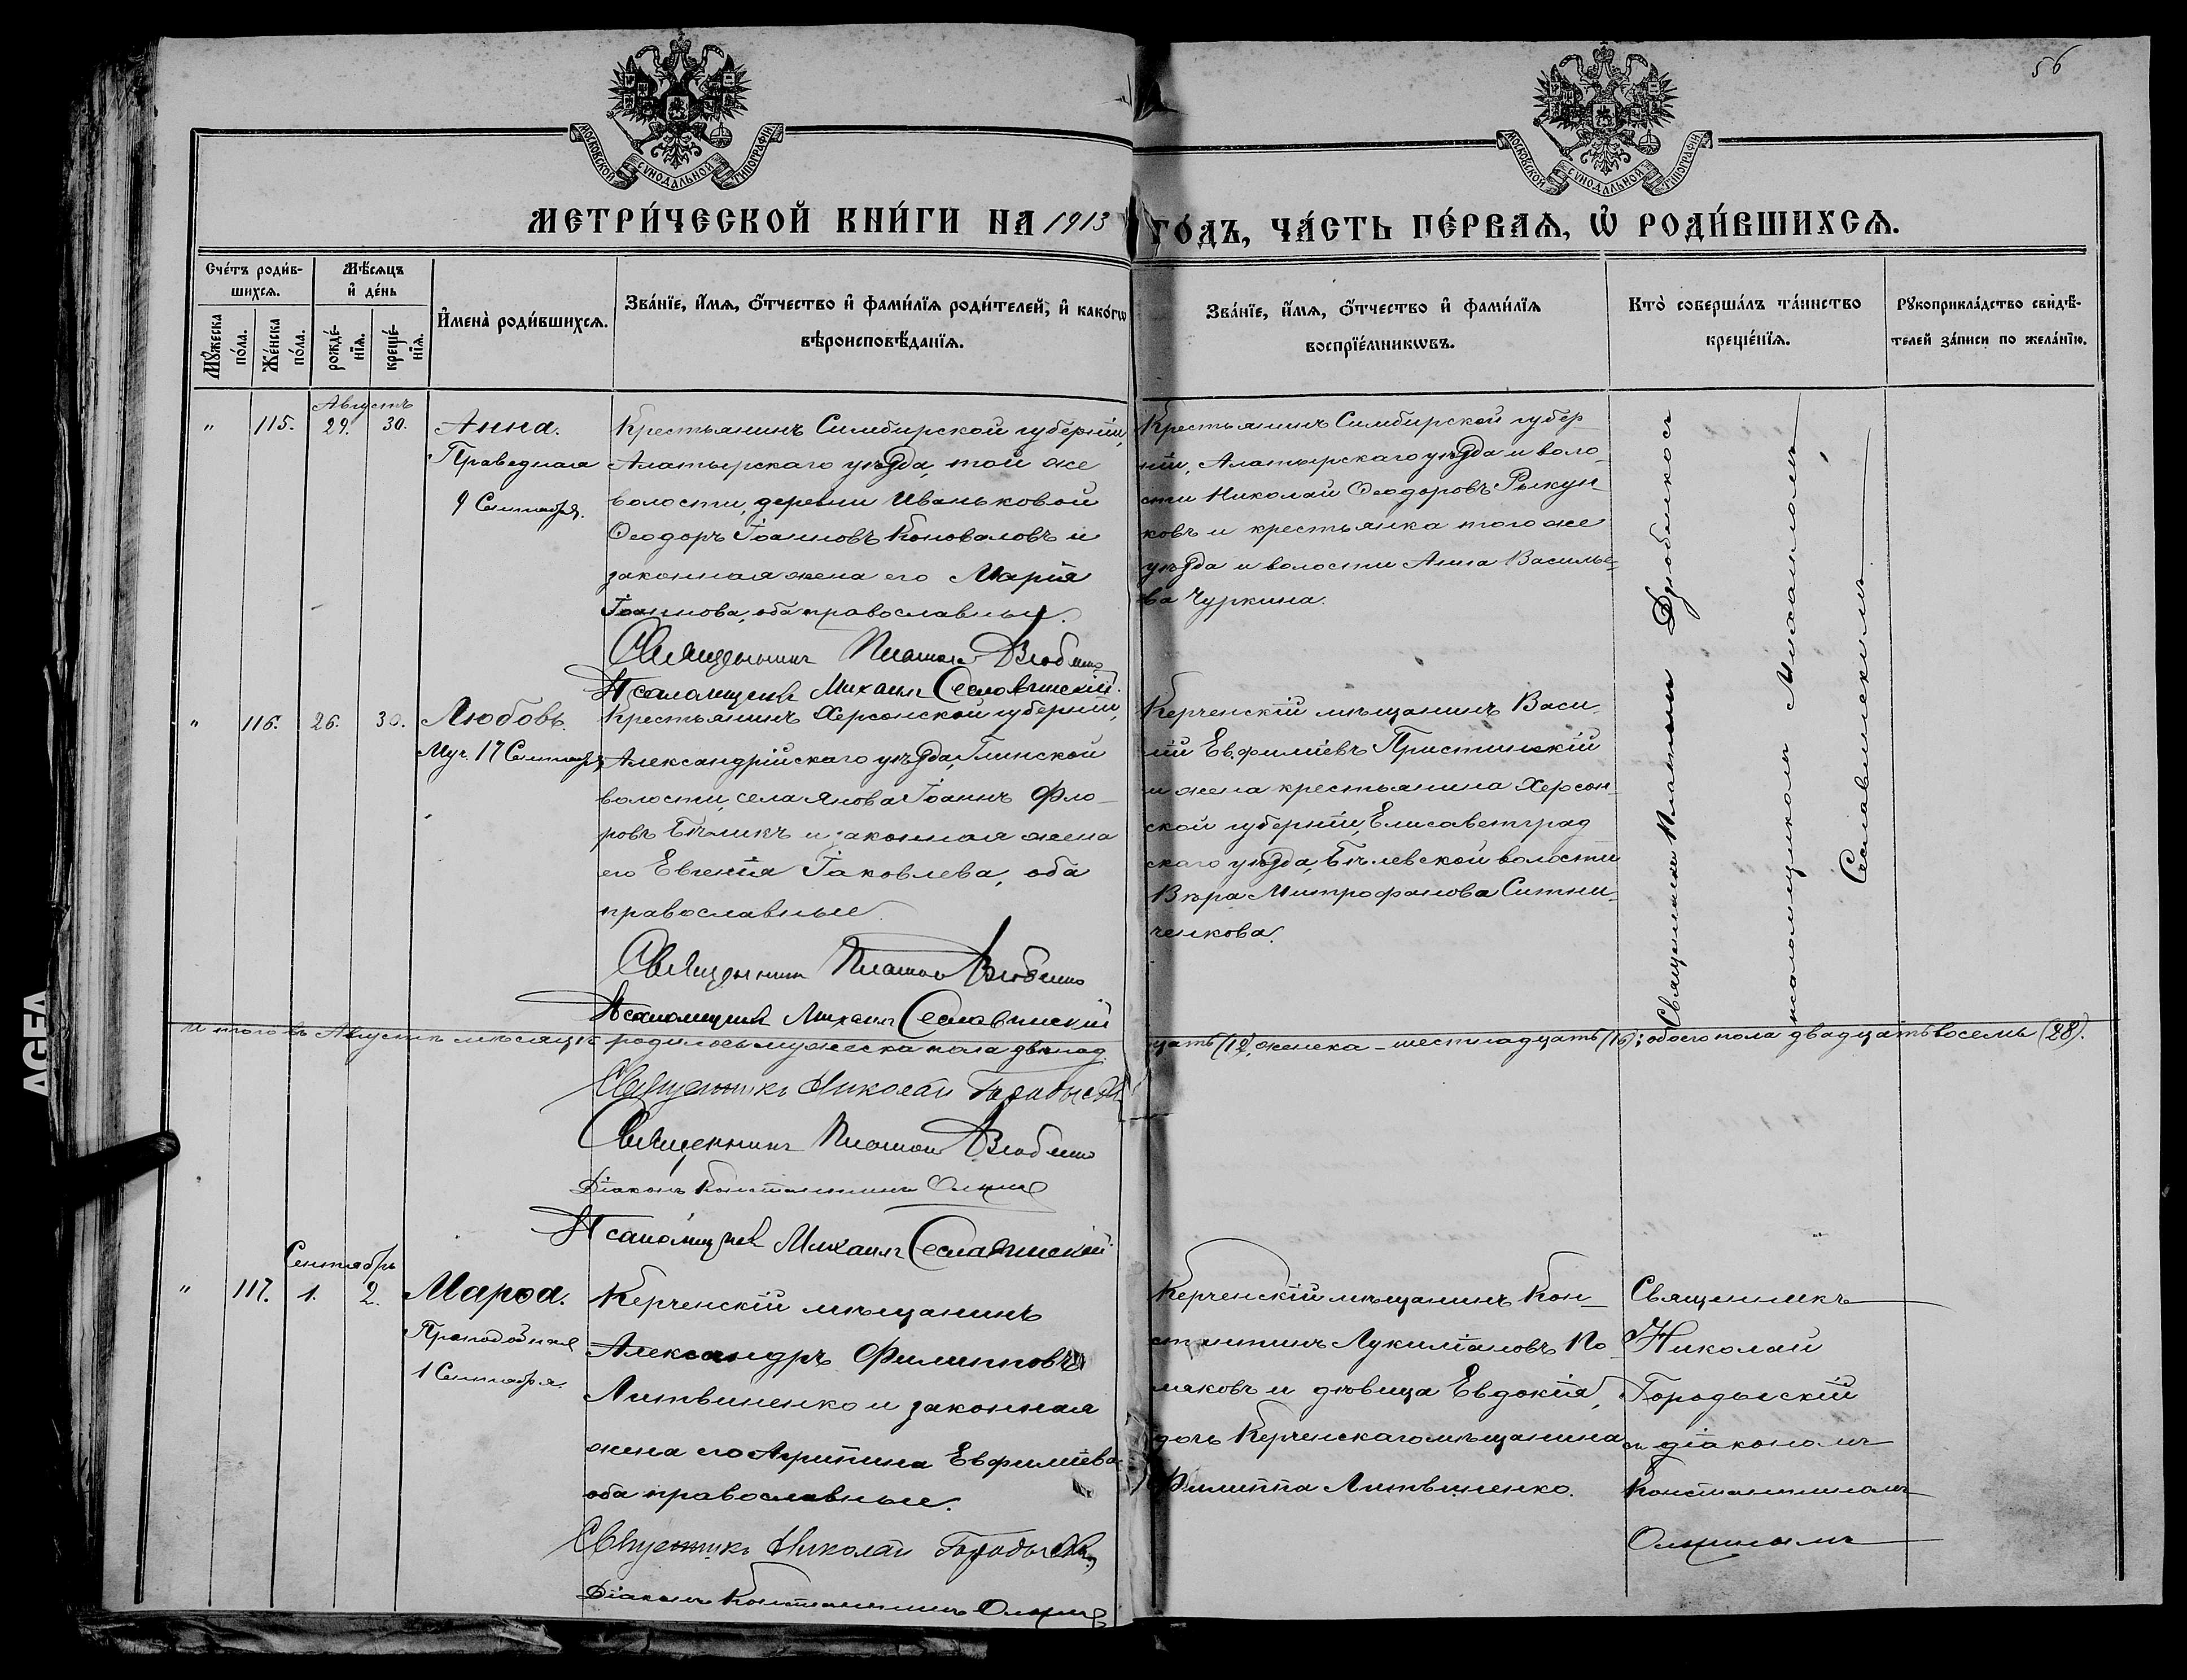 56
МОСКОВСКОЙ СУНОДАЛЬНОЙ ТИПОГРАФІИ
МОСКОВСКОЙ СУНОДАЛЬНОЙ ТИПОГРАФІИ
МЕТРИ́ЧЕСКОЙ КНИ́ГИ НА 1913 ГО́ДЪ, ЧА́СТЬ ПЕ́РВАѦ, Ѡ҆ РОДИ́ВШИХСѦ.
Сче́тъ роди́в-
шихсѧ.
Мꙋ́жеска
по́ла.
Же́нска
по́ла.
Мѣ́сѧцъ
и҆ де́нь
рожде́-
нїѧ.
креще́-
нїѧ.
И҆мена̀ роди́вшихсѧ.
Зва́нїе, и҆́мѧ, ѻ҆́тчество и҆ фами́лїѧ роди́телей, и҆ како́гѡ
вѣроисповѣ́данїѧ.
Зва́нїе, и҆́мѧ, ѻ҆́тчество и҆ фами́лїѧ
воспрїе́мникѡвъ.
Кто̀ соверша́лъ та́инство
креще́нїѧ.
Рꙋкоприкла́дство свидѣ́-
телей за́писи по жела́нїю.
Августъ
" 115. 29. 30. Анна.
Праведная
9 Сентября.
Крестьянинъ Симбирской губерніи,
Алатырскаго уѣзда, той же
волости, деревни Иваньковой
Ѳеодоръ Іоанновъ Коноваловъ и
законная жена его Марія
Іоаннова, оба православные.
Священникъ Платонъ
Псаломщикъ Михаилъ Сеславинскій.
Крестьянинъ Симбирской губер
ніи, Алатырскаго уѣзда и воло-
сти Николай Ѳеодоровъ Рыкун-
ковъ и крестьянка того же
уѣзда и волости Анна Василье-
ва Чуркина.
Священникъ Платонъ
псаломщикомъ Михаиломъ
Сеславинскимъ.
" 116. 26. 30. Любовь.
Муч. 17 Сентября
Крестьянинъ Херсонской губерніи,
Александрійскаго уѣзда, Глинской
волости, села Янова Іоаннъ Фло-
ровъ Бѣликъ и законная жена
его Евгенія Іаковлева, оба
православные.
Священникъ Платонъ
Псаломщикъ Михаилъ Сеславинскій
Керченскій мѣщанинъ Васи-
лій Евфиміевъ Пристинскій
и жена крестьянина Херсон-
ской губерніи, Елисаветград
скаго уѣзда, Бѣлевской волости
Вѣра Митрофанова Ситни-
ченкова.
Итого въ Августѣ мѣсяцѣ родилось мужеска пола двѣнад
цать (12), женска - шестнадцать (16); обоего пола двадцать восемь (28).
Священникъ Николай Городыскій
Священникъ Платонъ
Діаконъ Константинъ
Псаломщикъ Михаилъ Сеславинскій
Сентябрь
" 117. 1. 2. Марѳа.
Преподобная
1 Сентября.
Керченскій мѣщанинъ
Александръ Филипповъ
Литвиненко и законная
жена его Агрипина Евфиміева
оба православные.
Священникъ Николай Городыскій
Діаконъ Константинъ
Керченскій мѣщанинъ Кон-
стантинъ Лукиліановъ По
маковъ и дѣвица Евдокія,
дочь Керченскаго мѣщанина
Филиппа Литвиненко.
Священникъ
Николай
Городыскій
съ діакономъ
Константиномъ
AGFA